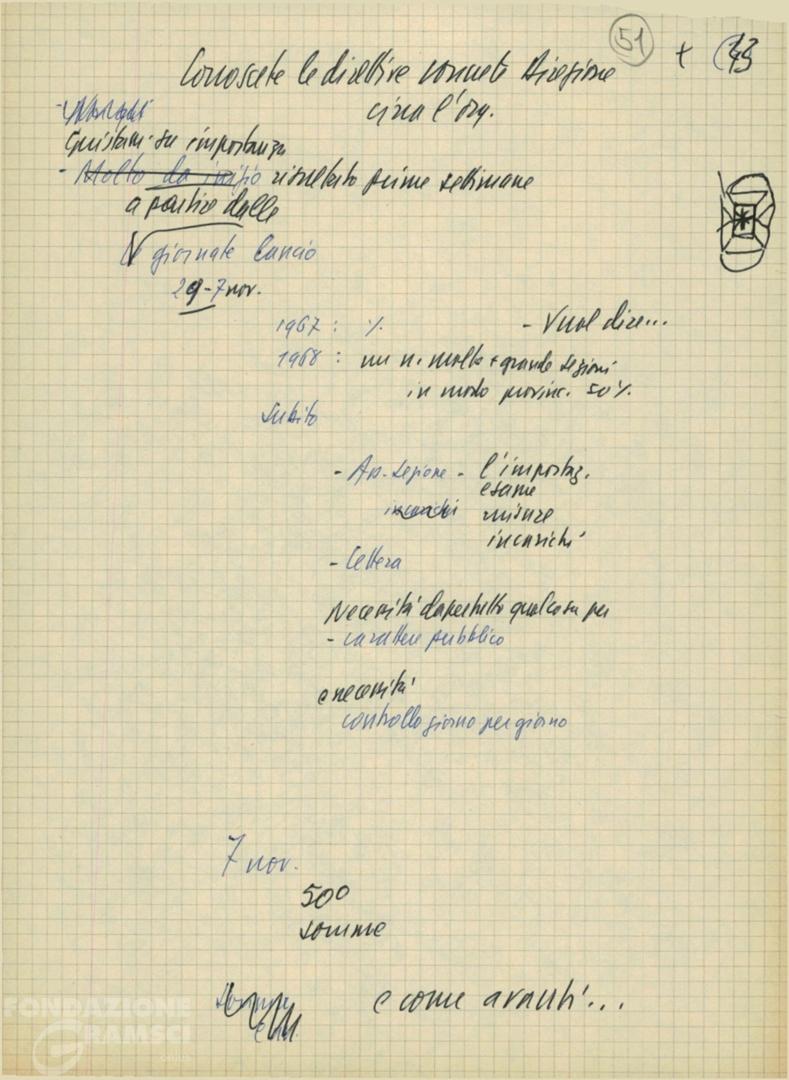 51 + 43
Conoscete le direttive concrete Direzione
circa l'org.
Insistiam. su importanza
- Molto da inizio risultato prime settimane
a partire dalle
le giornate lancio
29-7 nov.
1967: %
- Vuol dire...
1968: un n. molto + grande sezioni
in modo provinc. 50%.
Subito
- Ap. Sezione - l'importaz.
esame
incarichi misure
incarichi
- Lettera
Necessità dapertutto qualcosa per
- carattere pubblico
e necessità
controllo giorno per giorno
7 nov.
500
somme
e come avanti...
FONDAZIONE
GRAMSCI
ONLUS